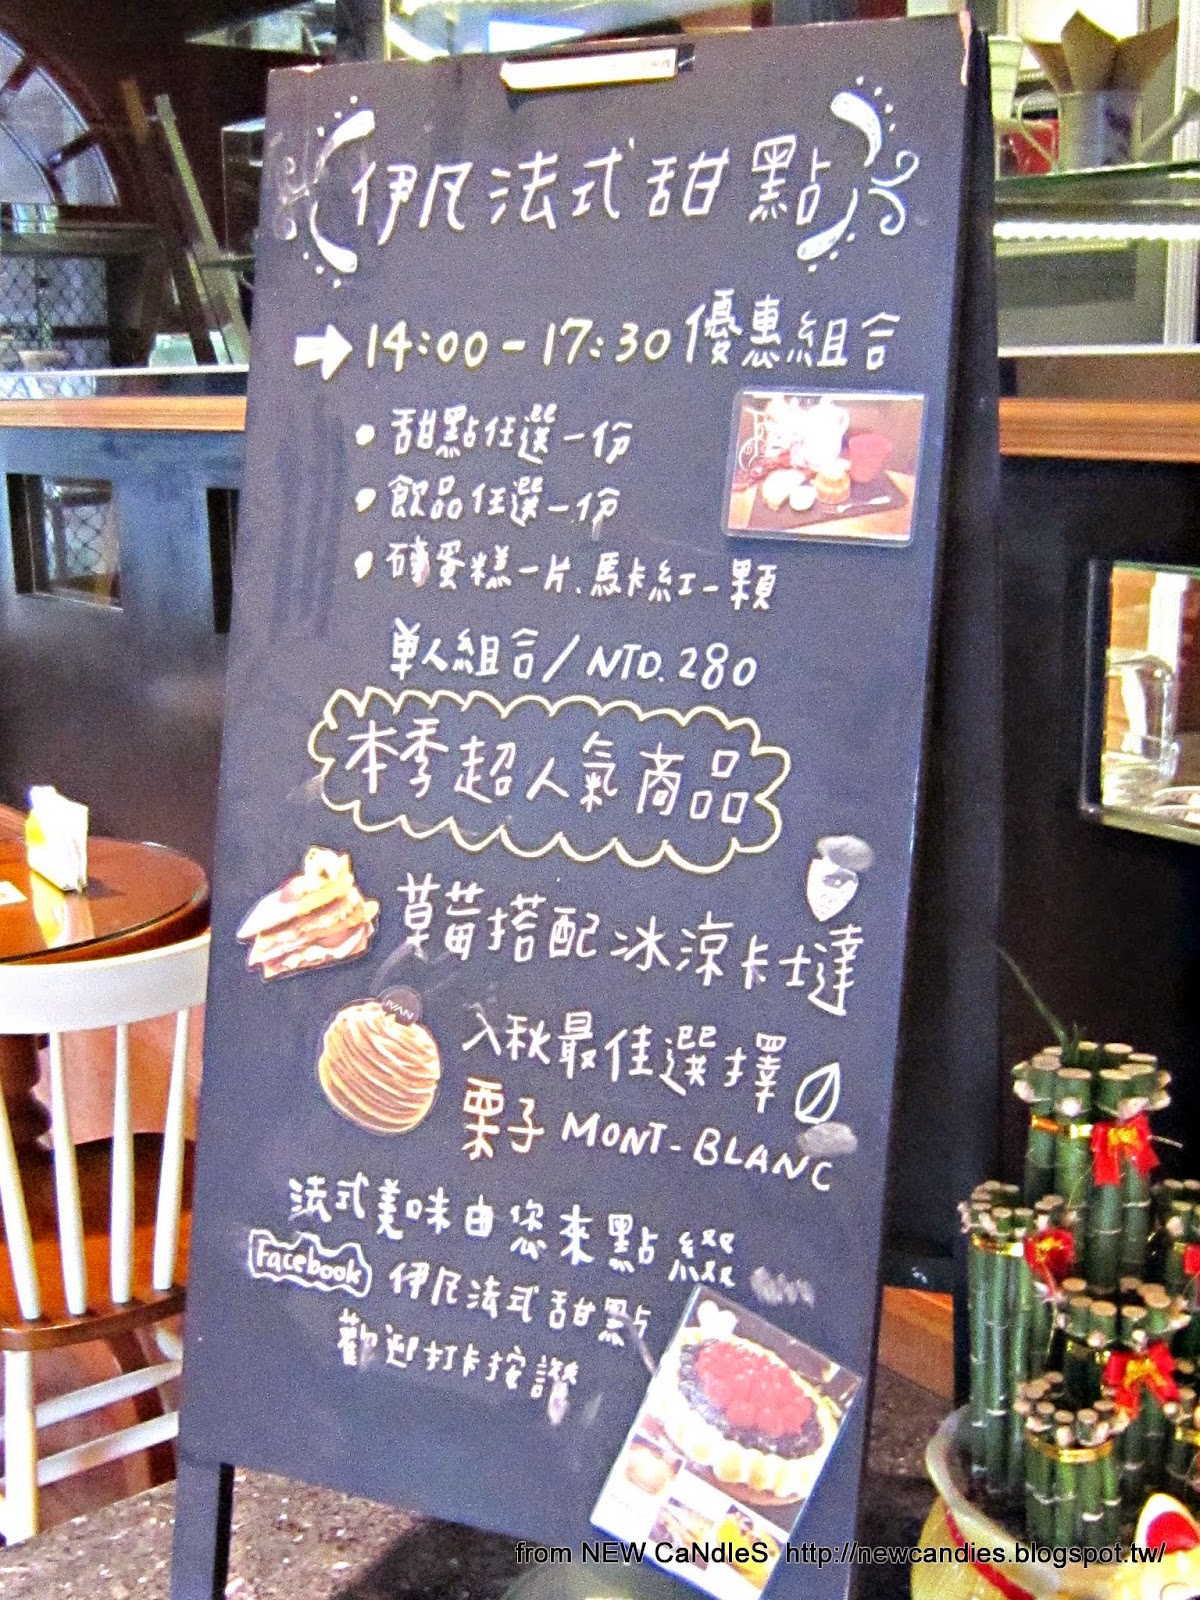 伊凡法式甜點
14:00-17:30 優惠組合
• 甜點任選一份
• 飲品任選一份
• 磚蛋糕一片、馬卡紅一顆
單人組合/NTD.280
本季超人氣商品
草莓搭配冰涼卡士達
IVAN
入秋最佳選擇
栗子 MONT-BLANC
法式美味由您來點綴
Facebook 伊凡法式甜點
歡迎打卡按讚
from NEW CaNdleS http://newcandies.blogspot.tw/